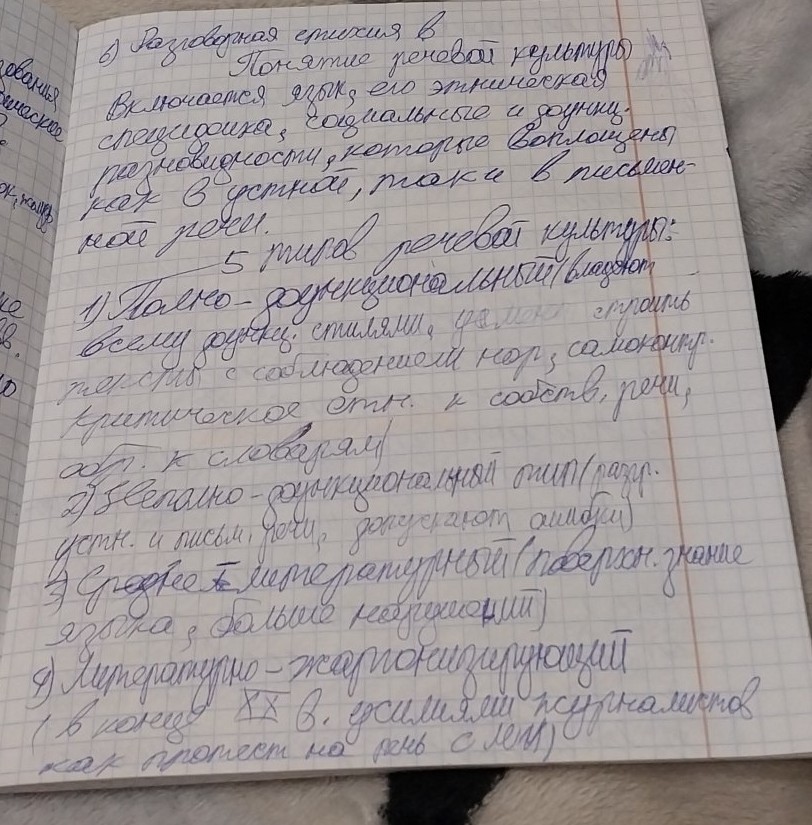 зования
ическое
6) Разговорная стихия в
Понятие речевой культуры
Включается язык, его этническая
специфика, социальные и функц.
разновидности, которые воплощены
как в устной, так и в письмен-
ной речи.
5 типов речевой культуры:
1) Полно-функциональный (владеют
всему функц. стилями, умеют строить
тексты с соблюдением нор, самоконтр.
критическое отн. к собств. речи,
обр. к словарям)
2) Неполно-функциональный тип (разгр.
устн. и письм. речи, допускают ошибки)
3) Среднелитературный (поверхн. знание
языка, больше нарушений)
4) Литературно-жаргонизирующий
(в конце XX в. усилиями журналистов
как протест на речь с лет)